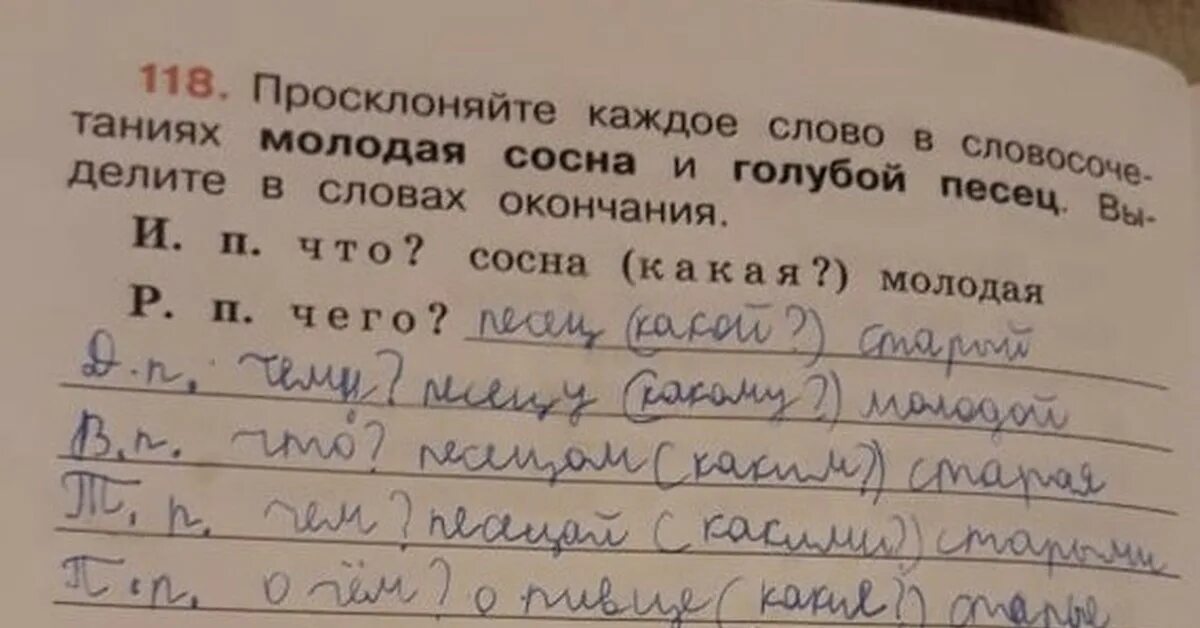 118. Просклоняйте каждое слово в словосоче-
таниях молодая сосна и голубой песец. Вы-
делите в словах окончания.
И. п. что? сосна (какая?) молодая
Р. п. чего? песец (какой?) старый
Д.п. чему? песецу (какому?) молодой
В.п. что? песецом (каким?) старая
Т.п. чем? песецай (какими?) старыми
П.п. о чём? о пивце (какие?) старые